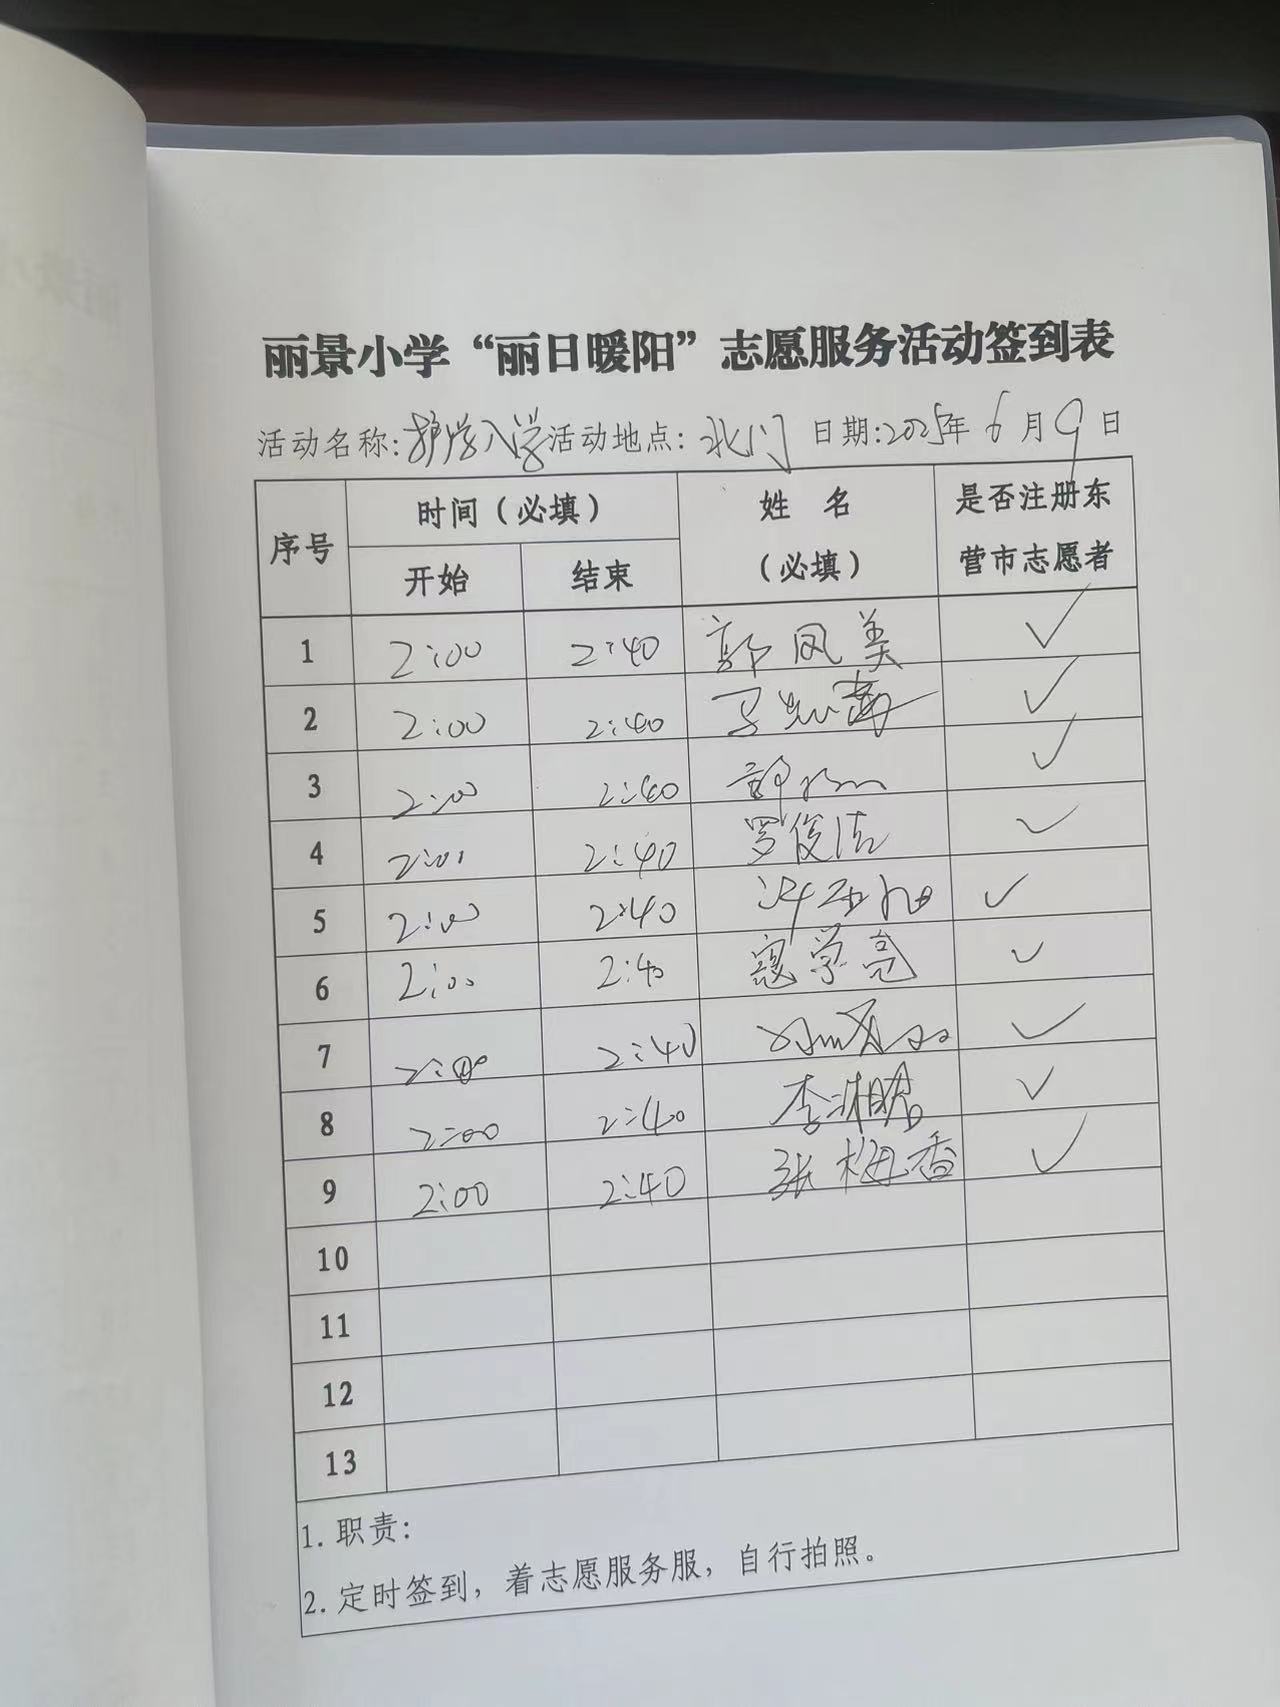 丽景小学“丽日暖阳”志愿服务活动签到表
活动名称:护学入学 活动地点: 北门 日期:2025年 6 月 9 日
序号 时间(必填) 姓 名 (必填) 是否注册东营市志愿者
开始 结束
1 2:00 2:40 郭凤美 ✓
2 2:00 2:40 ✓
3 2:00 2:40 ✓
4 2:00 2:40 罗俊洁 ✓
5 2:00 2:40 ✓
6 2:00 2:40 寇学亮 ✓
7 2:00 2:40 ✓
8 2:00 2:40 李湘君 ✓
9 2:00 2:40 张梅香 ✓
10
11
12
13
1. 职责:
2. 定时签到，着志愿服务服，自行拍照。